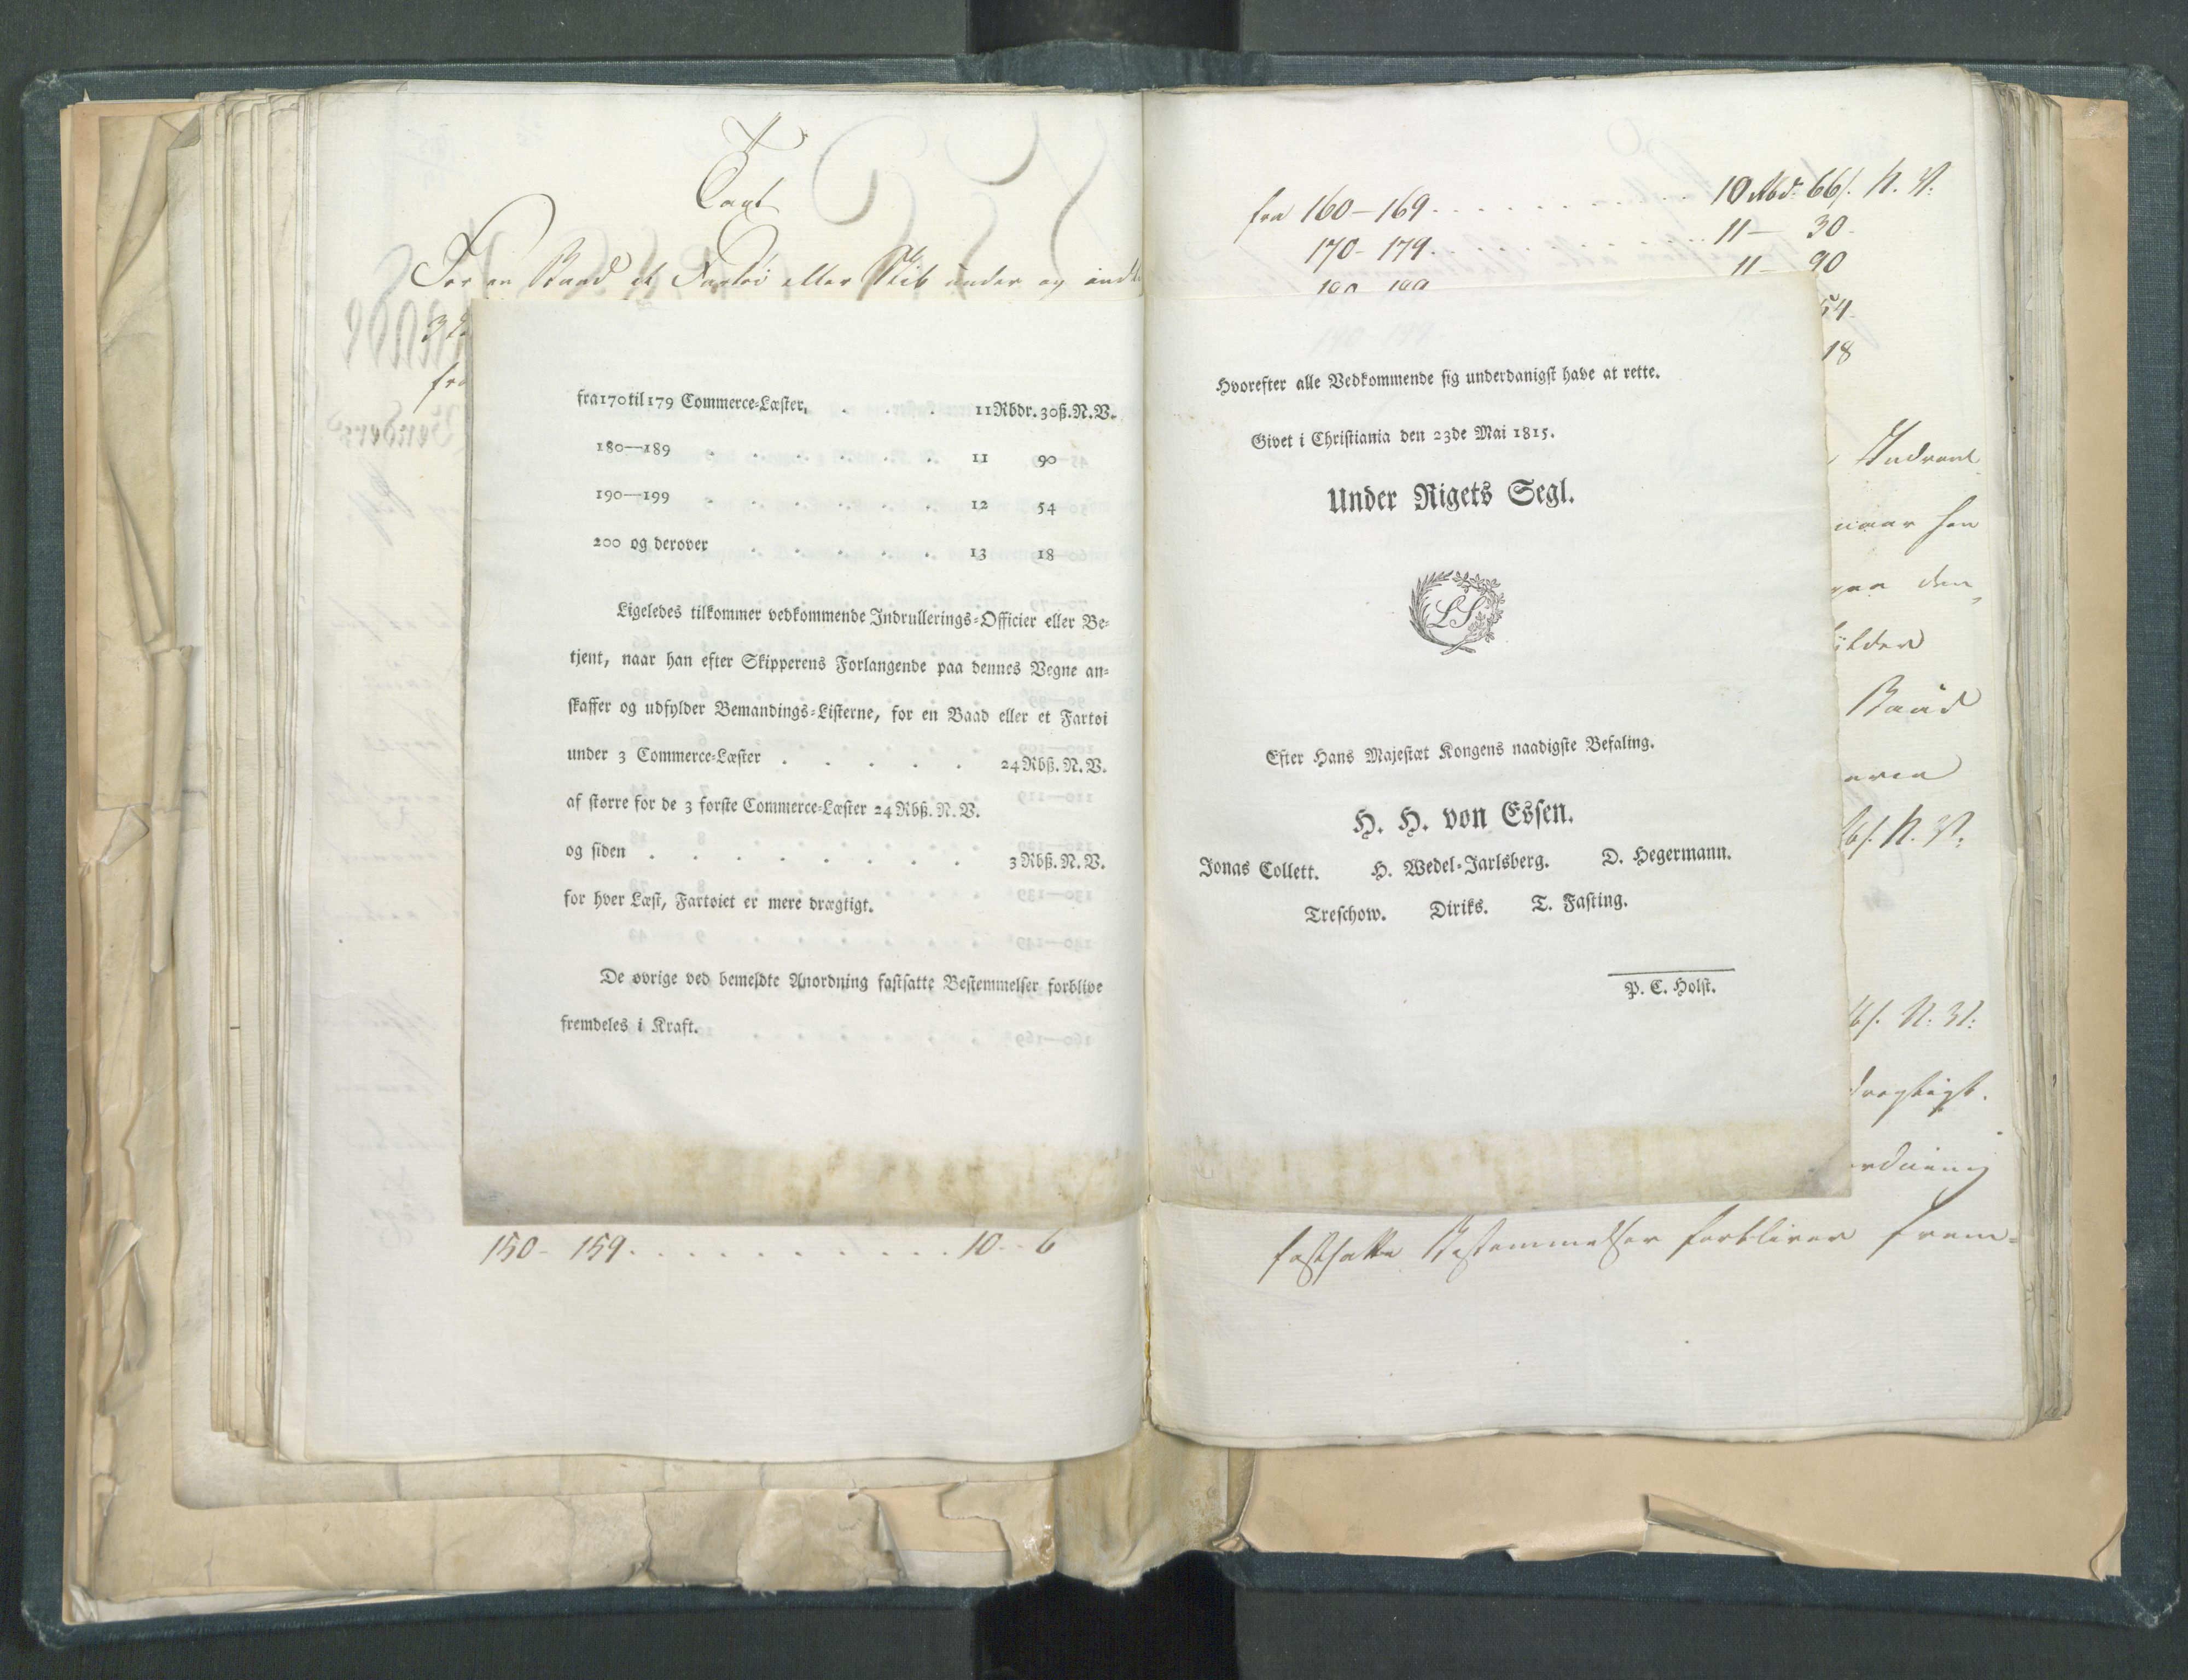 Taxt
For en Baad et Fartøi eller Skib under og indtil
fra170til179 Commerce-Læster, . . . . 11Rbdr.30ß.N.V.
180—189 . . . . . . 11 90
190—199 . . . . . . 12 54
200 og derover . . . . . 13 18
Ligeledes tilkommer vedkommende Indrullerings-Officier eller Be-
tjent, naar han efter Skipperens Forlangende paa dennes Vegne an-
skaffer og udfylder Bemandings-Listerne, for en Baad eller et Fartøi
under 3 Commerce-Læster . . . . . 24Rbß.N.V.
af større for de 3 første Commerce-Læster 24Rbß.N.V.
og siden . . . . . . . . 3Rbß.N.V.
for hver Læst, Fartøiet er mere drægtigt.
De øvrige ved bemeldte Anordning fastsatte Bestemmelser forblive
fremdeles i Kraft.
150 - 159 . . . . . . . . . . 10 - 6
fra 160 - 169 . . . . . . . . 10 Rbd: 66 ß. N. V:
170 - 179 . . . . . . . 11 — 30
11 — 90
54
18
Hvorefter alle Vedkommende sig underdanigst have at rette.
Givet i Christiania den 23de Mai 1815.
Under Rigets Segl.
LS
Efter Hans Majestæt Kongens naadigste Befaling.
H. H. von Essen.
Jonas Collett. H. Wedel-Jarlsberg. D. Hegermann.
Treschow. Diriks. T. Fasting.
P. C. Holst.
naar han
paa den
Baad
N. V:
N: V:
drægtigt.
fastsatte Bestemmelser forbliver frem-